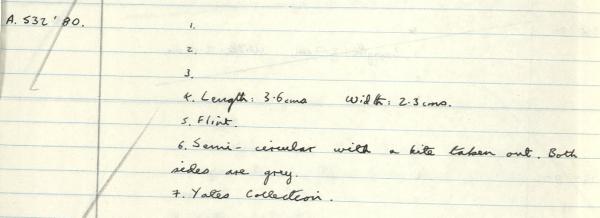 A. 532 '80.
1.
2.
3.
4. Length: 3.6 cms Width: 2.3 cms.
5. Flint.
6. Semi-circular with a bite taken out. Both
sides are grey.
7. Yates Collection.